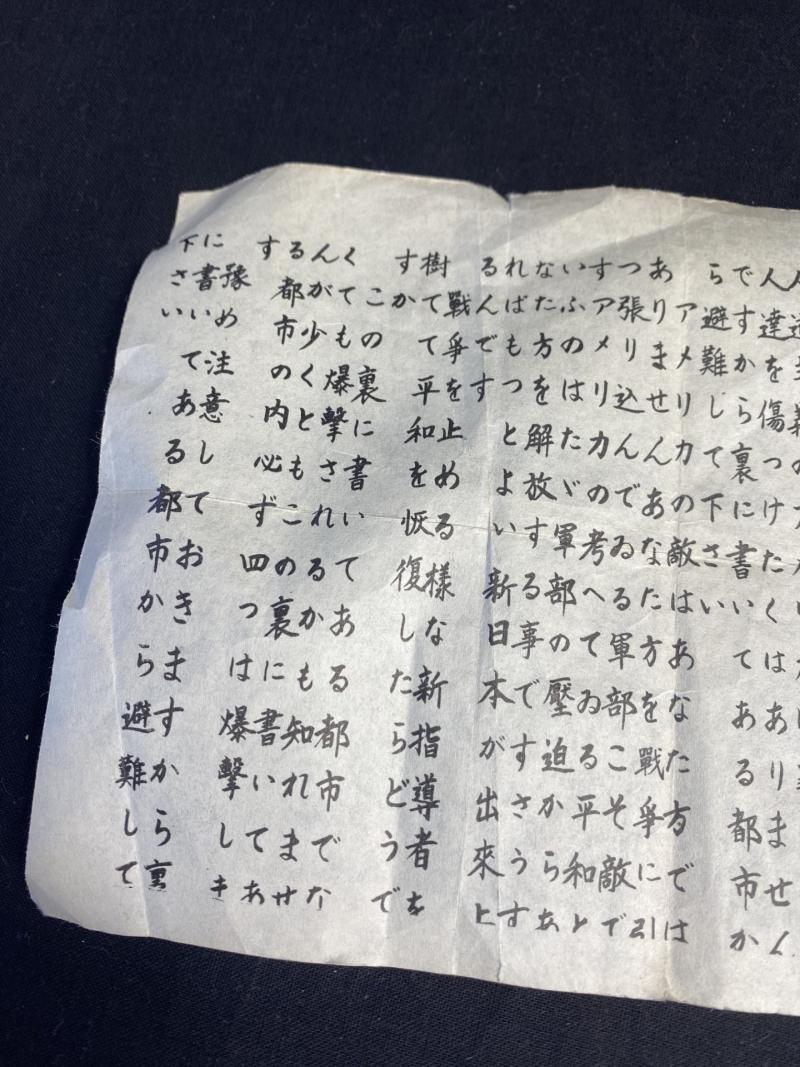 人達を傷つけたくはありません
ですから裏に書いてある都市か
ら避難して下さい
アメリカの敵はあなた方では
ありませんあなた方を戰爭に引
つ張り込んでゐる軍部こそ敵で
すアメリカの考へてゐる平和と
いふのはたゞ軍部の壓迫からあ
なた方を解放する事ですさうす
ればもつとよい新日本が出來上
るんです
戰爭を止める様な新指導者を
樹てて平和を恢復したらどうで
すか
この裏に書いてある都市でな
くても爆擊されるかも知れませ
んが少くともこの裏に書いてあ
る都市の内必ず四つは爆擊しま
す
豫め注意しておきますから裏
に書いてある都市から避難して
下さい